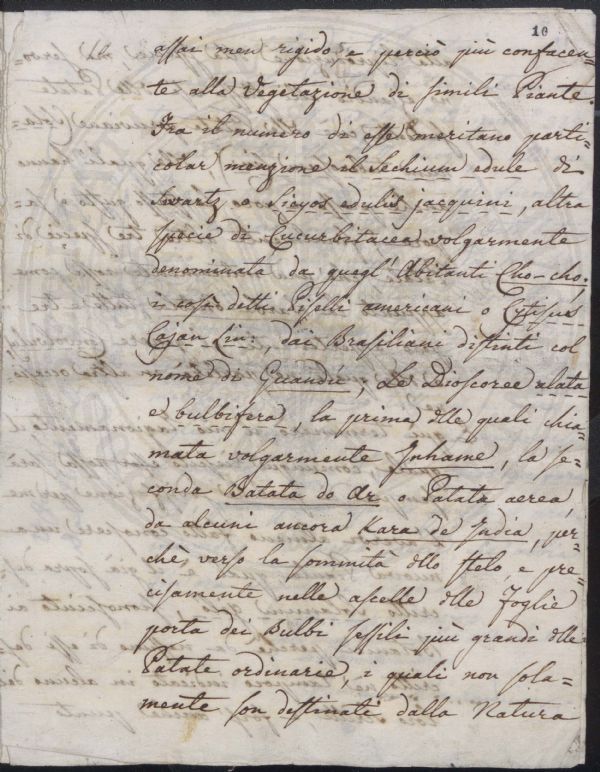 10
assai men rigido e perciò più confacen=
te alla Vegetazione di simili Piante.
Fra il numero di esse meritano parti=
colar menzione il Sechium edule di
Swartz o Sicyos edulis jacquini, altra
specie di Cucurbitacea volgarmente
denominata da quegl' Abitanti Cho-cho;
i così detti Piselli americani o Cytisus
Cajan Lin:, dai Brasiliani distinti col
nome di Guandú, Le Dioscoree alata
e bulbifera, la prima dlle quali chia=
mata volgarmente Inhame, la se=
conda Batata do Ar o Patata aerea,
da alcuni ancora Kara de India, per=
chè verso la sommità dllo stelo, e pre=
cisamente nelle ascelle dlle Foglie
porta dei Bulbi sessili più grandi dlle
Patate ordinarie, i quali non sola=
mente son destinati dalla Natura